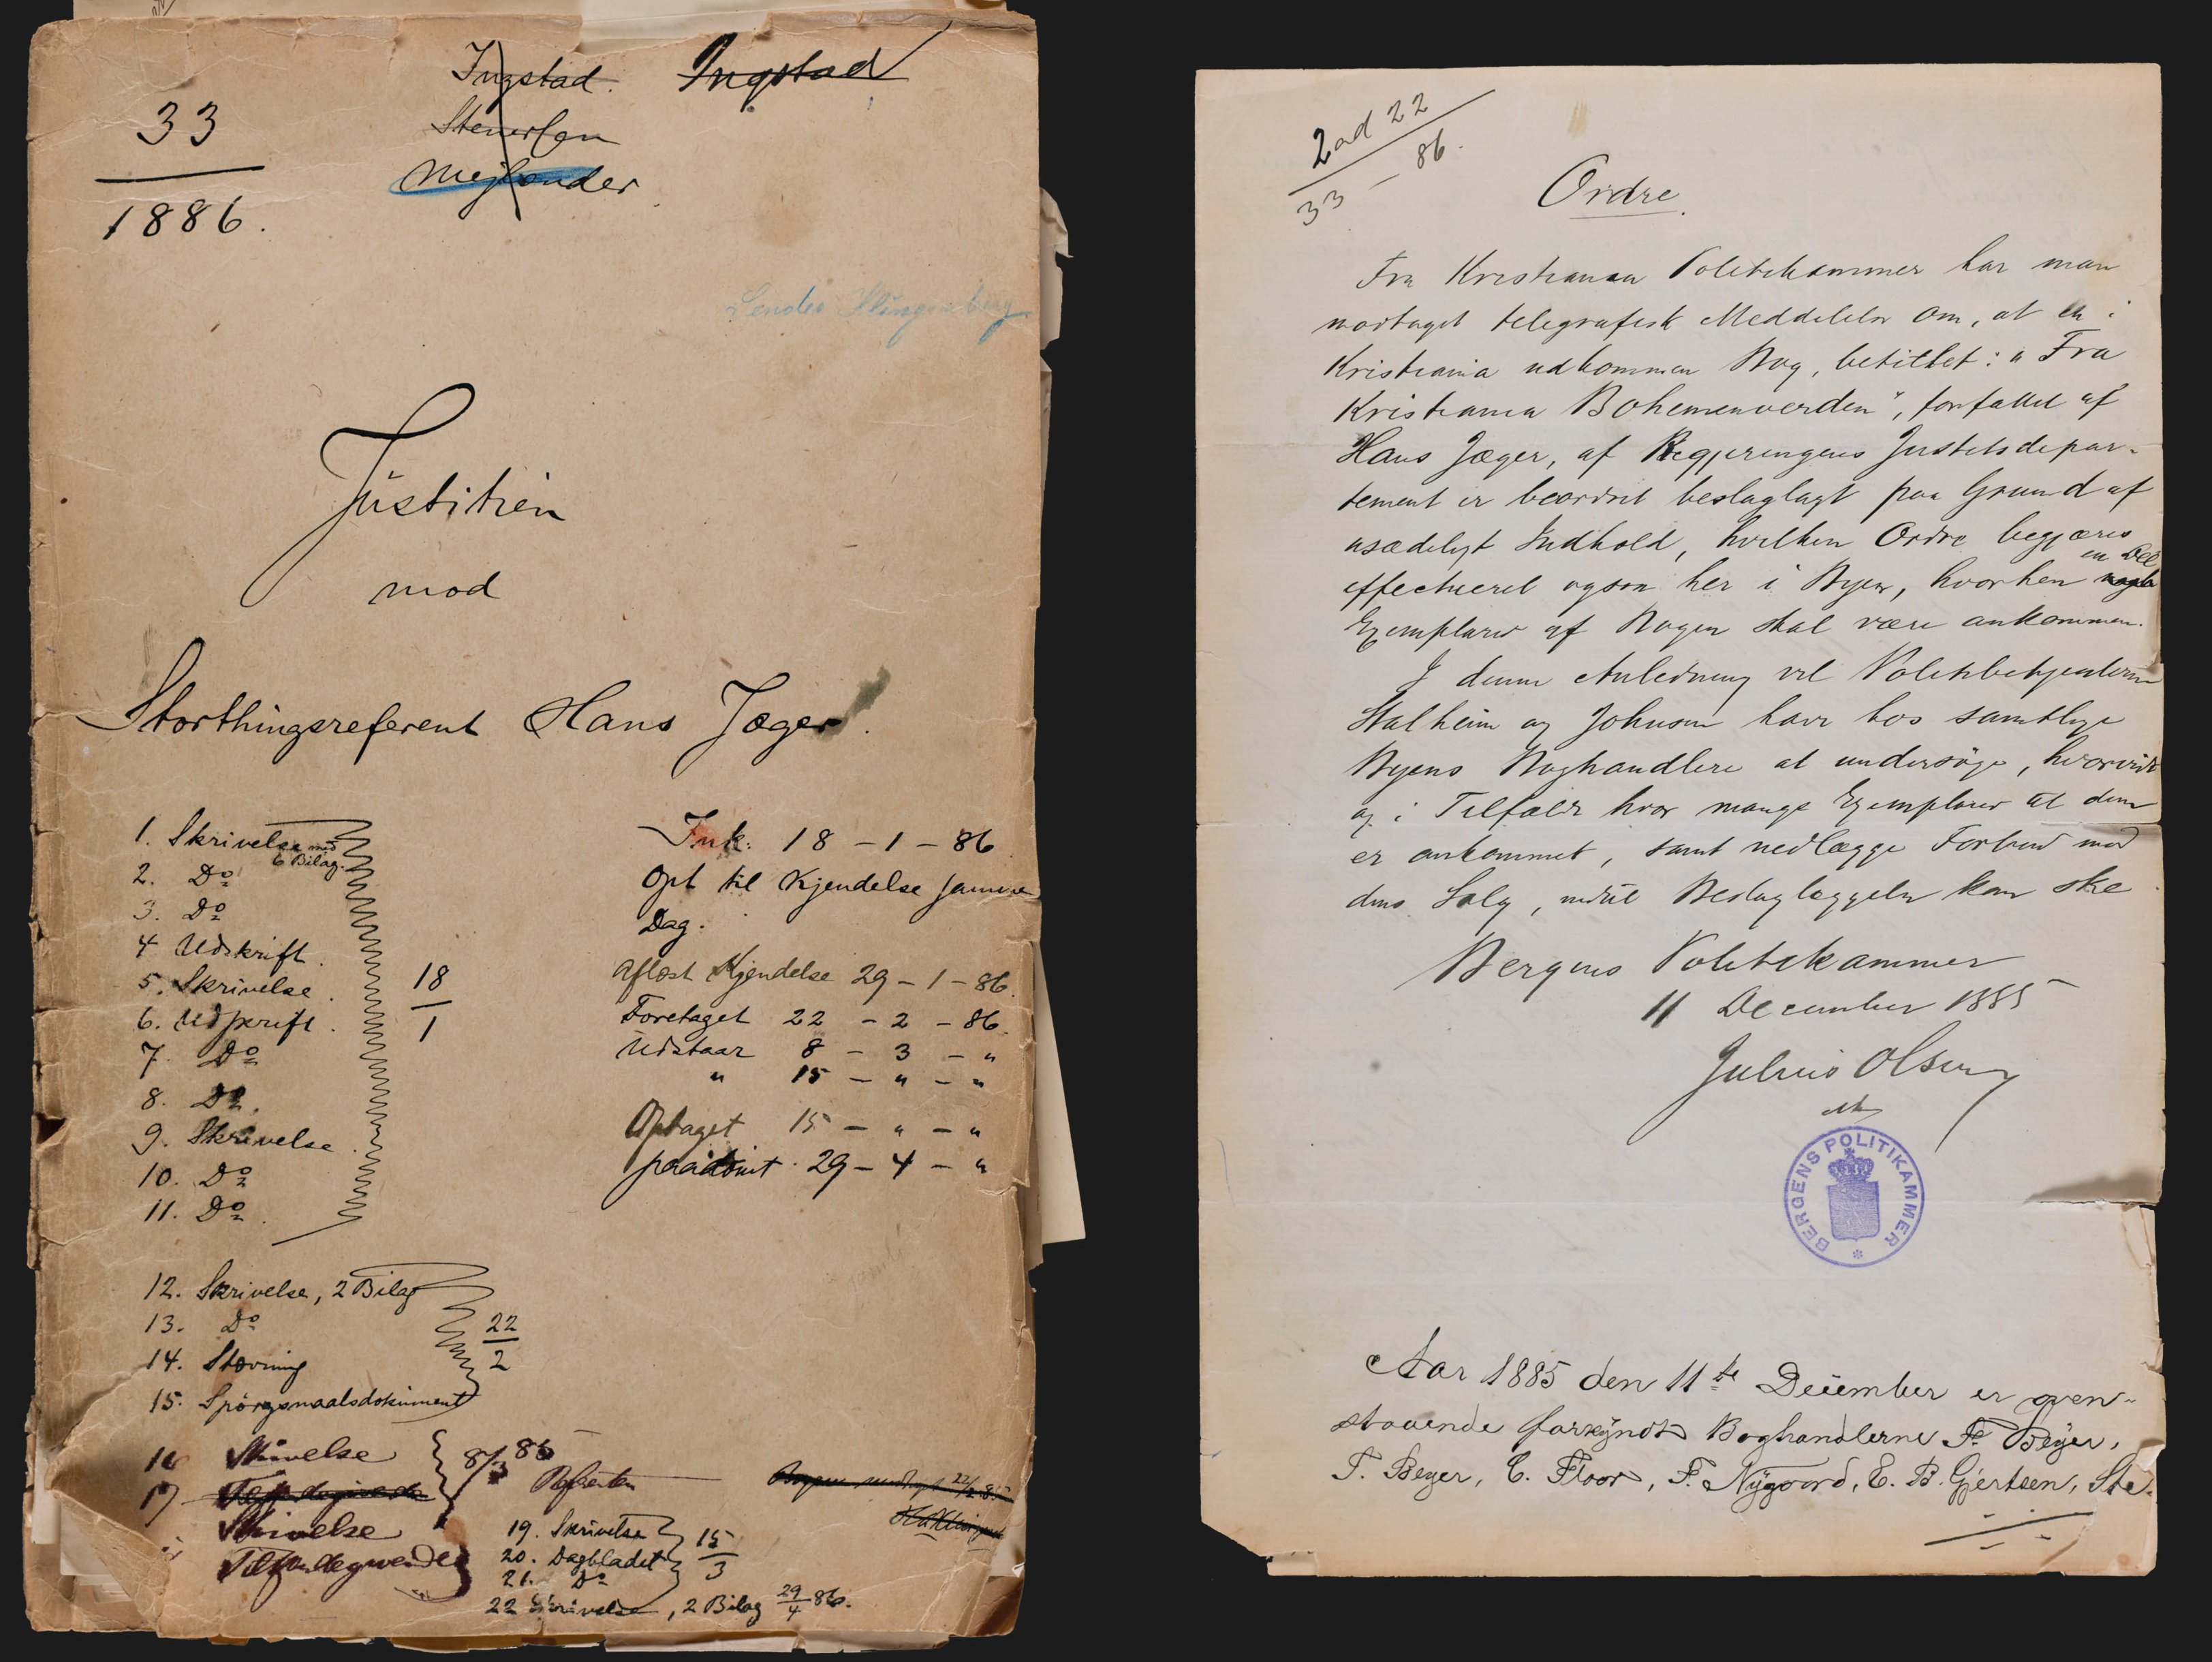 Ingstad. Ingstad
Stenersen
Mejlænder
33
1886.
Sendes Klingenberg
Justitien
mod
Storthingsreferent Hans Jæger.
1. Skrivelse med
6 Bilag.
2. Do
3. Do
4 Udskrift.
5. Skrivelse.
6. Udskrift.
7. Do
8. Do.
9. Skrivelse.
10. Do
11. Do.
18
1
Ink: 18 - 1 - 86
Opt til Kjendelse samme
Dag.
Aflæst Kjendelse 29 - 1 - 86.
Foretaget 22 - 2 - 86.
Udstaar 8 - 3 - "
" 15 - " - "
Optaget 15 - " - "
paadømt. 29 - 4 - "
12. Skrivelse, 2 Bilag
13. Do
14. Stævning
15. Spörgsmaalsdokument
22
2
16 Skrivelse
17
Skrivelse
Tilstedeværende
8/3 86
19. Skrivelse
20. Dagbladet
21. Do
15
3
22 Skrivelse, 2 Bilag 29/4 86.
2 ad 22
33 - 86.
Ordre.
Fra Kristiania Politikammer har man
modtaget telegrafisk Meddelelse om, at en i
Kristiania udkommen Bog, betitlet: "Fra
Kristiania Bohemenverden", forfattet af
Hans Jæger, af Regjeringens Justitsdepar-
tement er beordret beslaglagt paa Grund af
usædeligt Indhold, hvilken Ordre begjæres
effectueret ogsaa her i Byen, hvorhen en Del
Exemplarer af Bogen skal være ankommen.
I denne Anledning vil Politibetjenterne
Stalheim og Johnsen have hos samtlige
Byens Boghandlere at undersöge, hvorvidt
og i Tilfælde hvor mange Exemplarer til dem
er ankommet, samt nedlægge Forbud mod
dens Salg, indtil Beslaglæggelse kan ske
Bergens Politikammer
11 December 1885
Julius Olsen
BERGENS POLITIKAMMER
Aar 1885 den 11te December er oven-
staaende forkyndt Boghandlerne F. Beyer,
T. Beyer, C. Floor, F. Nygaard, E. B. Gjertsen, Ste-